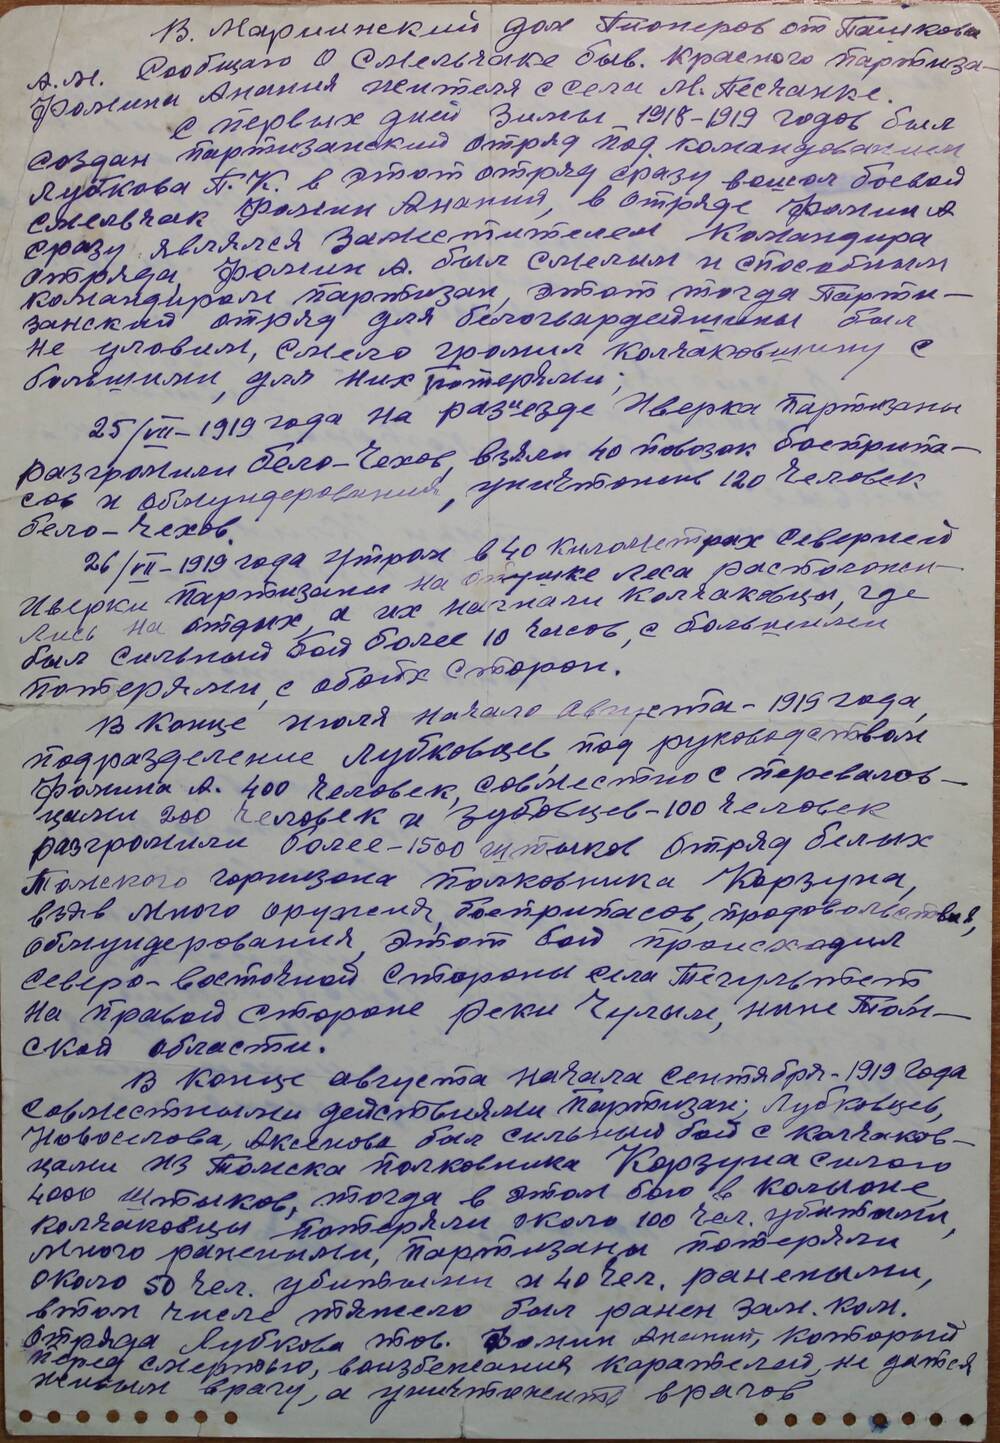 В. Мариинский дом Пионеров от Пашкова
А.М. Сообщаю О Смельчаке быв. Красного партиза-
Фомина Анания жителя с села М. Песчанке.
С первых дней Зимы 1918-1919 годов был
создан партизанский отряд под командованием
Лубкова П.К. в этот отряд сразу вошол боевой
смельчак Фомин Ананий, в отряде Фомин А
сразу являлся Заместителем Командира
отряда, Фомин А. был смелым и способным
командиром партизан, этот тогда Парти-
занский отряд для белогвардейщины был
не уловим, смело громил Колчаковщину с
большими для них потерями;
25/VII-1919 года на разъезде Иверка Партизаны
разгромили бело-Чехов, взяли 40 повозок боеприпа-
сов и обмундерования, уничтожив 120 человек
бело-Чехов.
26/VII-1919 года утром в 40 километрах Северней
Иверки Партизаны на опушке леса расположи-
лись на отдых, а их нагнали Колчаковцы, где
был сильный бой более 10 часов, с большими
потерями, с обоих сторон.
В Конце июля начало Августа-1919 года,
подразделение Лубковцев, под руководством
Фомина А. 400 человек, совместно с перевалов-
цами 200 человек и Зубовцев-100 человек
разгромили более-1500 штыков отряд белых
Томского гарнизона полковника Корзуна,
взяв много оружия, боеприпасов, продовольствия,
обмундерования, этот бой происходил
северо-восточной стороны села Тегульдет
на правой стороне реки Чулым, ныне Том-
ской области.
В Конце августа начала сентября-1919 года
совместными действиями Партизан; Лубковцев,
Новоселова, Аксенова был сильный бой с колчаков-
цами из Томска полковника Корзуна силою
4000 штыков, тогда в этом бою в Колыоне,
колчаковцы потеряли около 100 чел. убитыми,
много ранеными, партизаны потеряли
около 50 чел. убитыми и 40 чел. ранеными,
в том числе тяжело был ранен зам. ком.
отряда Лубкова тов. Фомин Ананий, который
перед смертью, воизбежания карателей, не дался
живым врагу, а уничтожить врагов